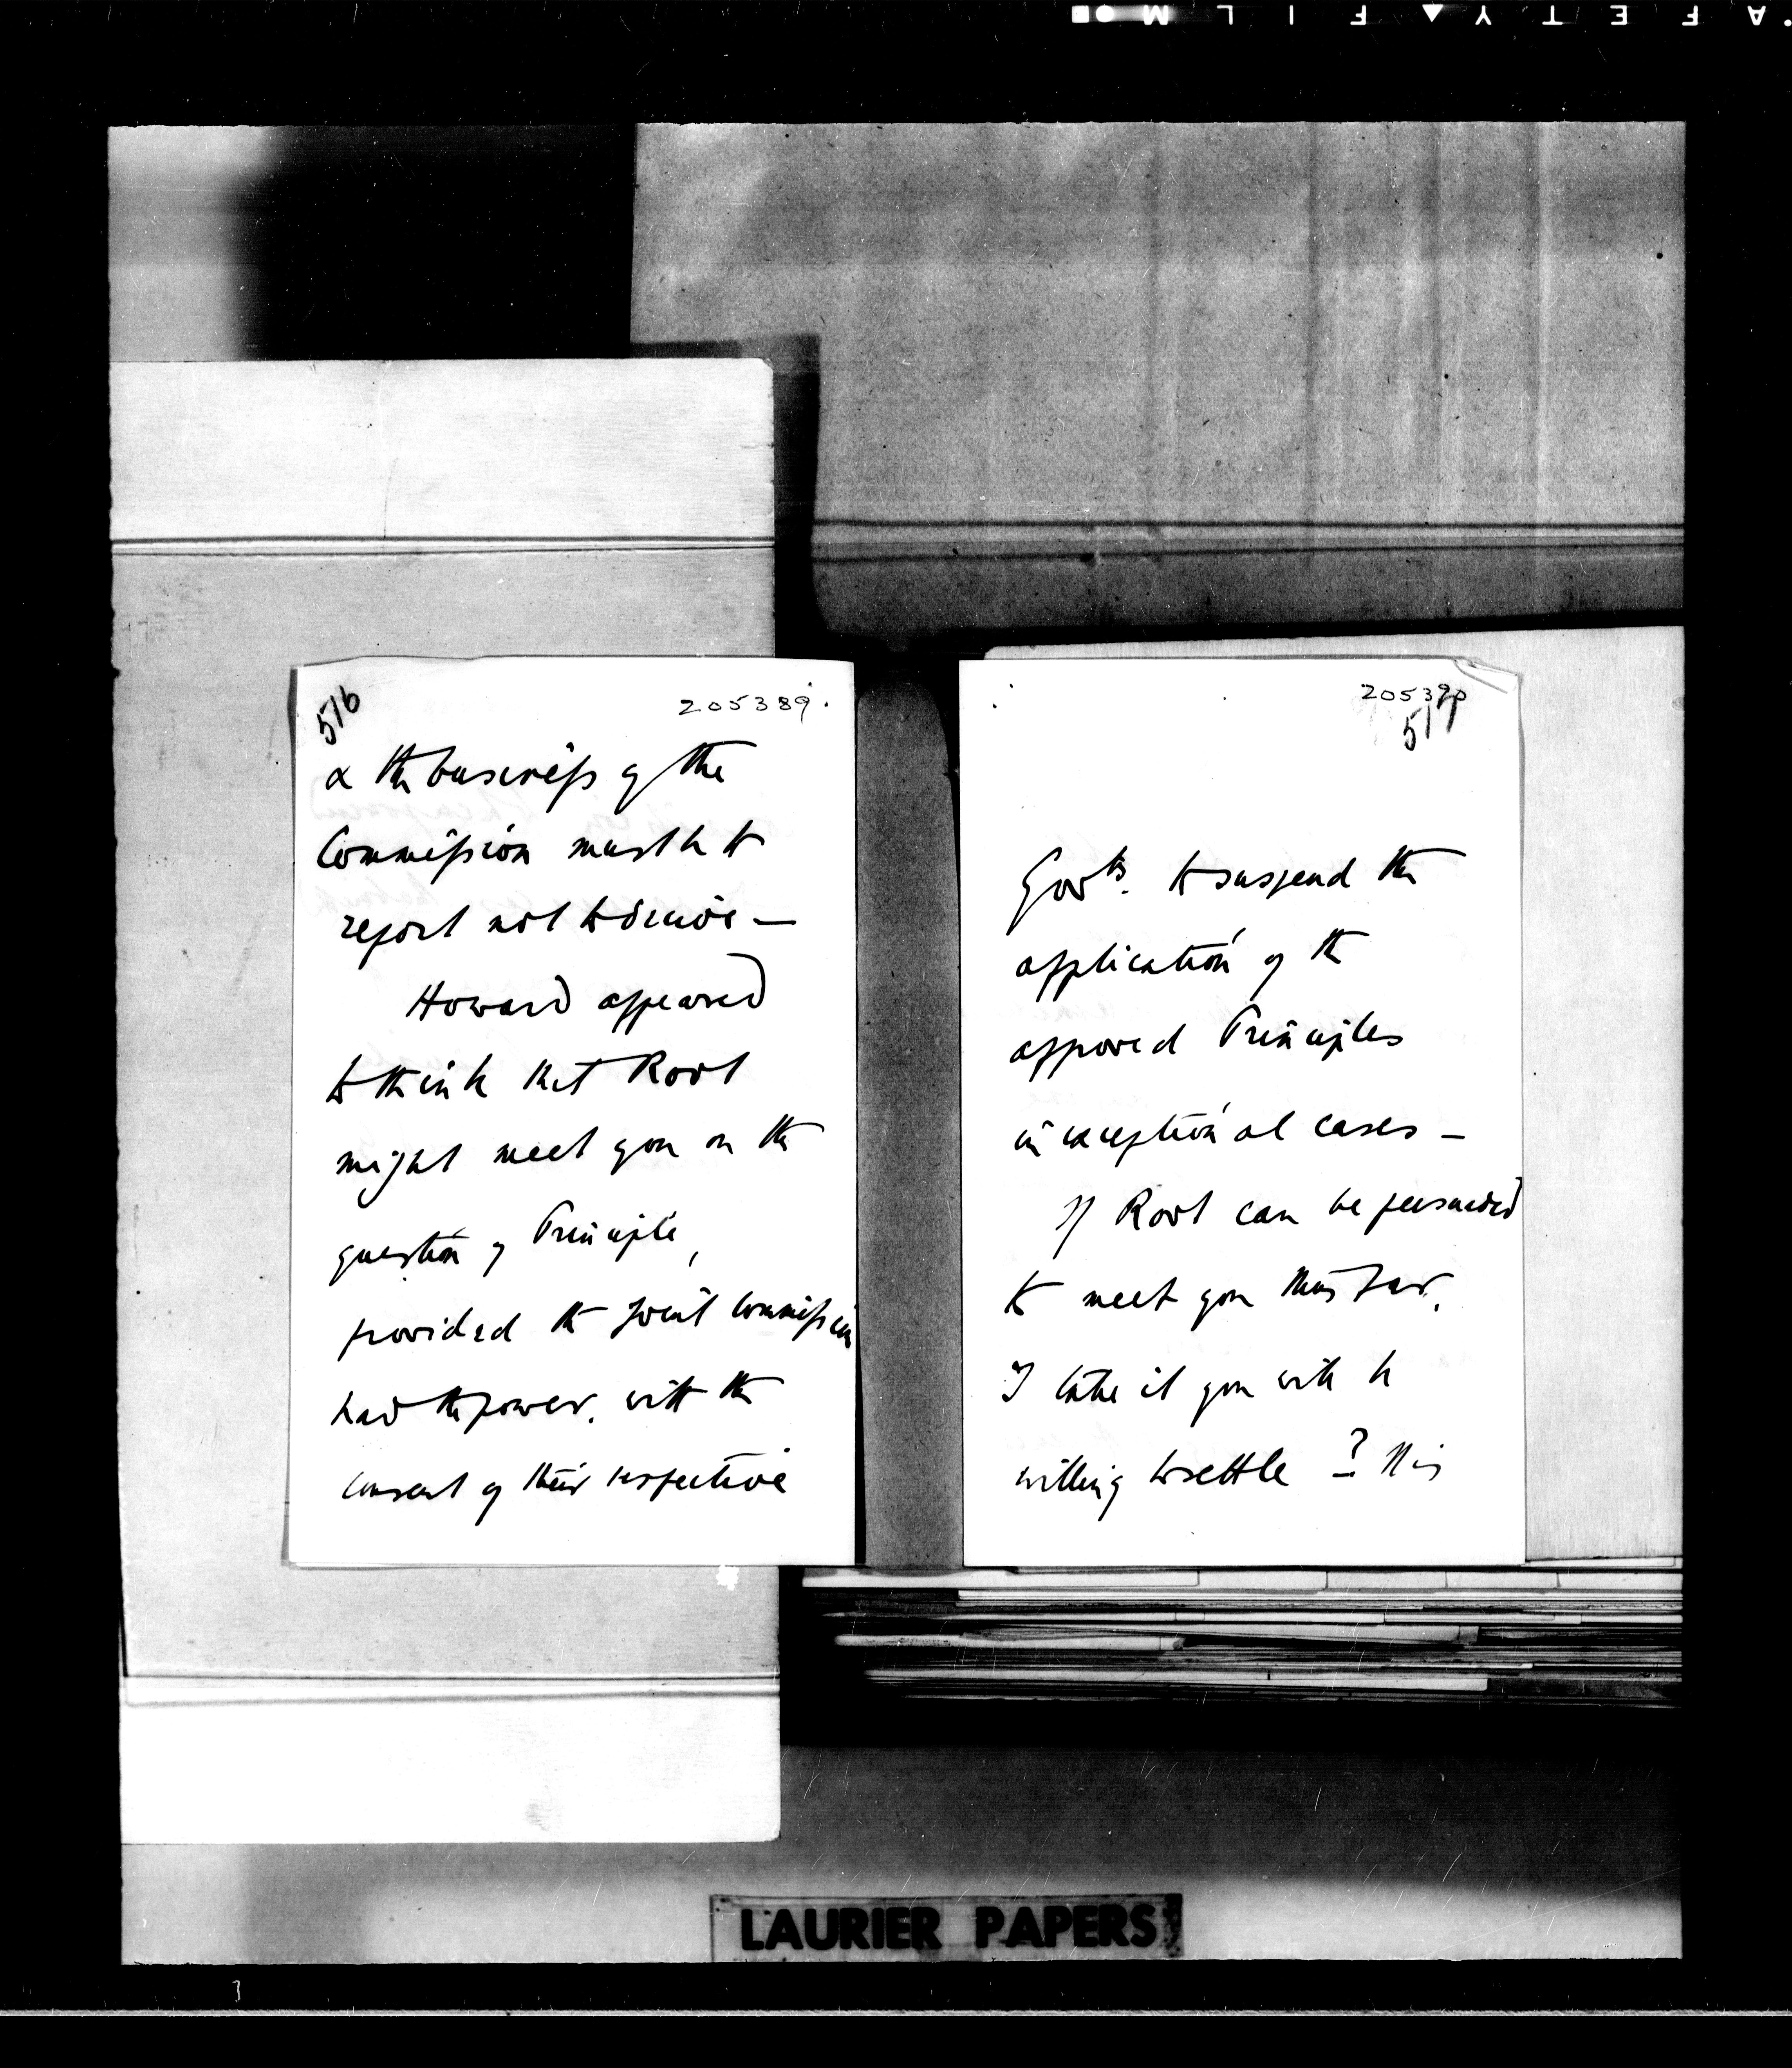 516
205389
& the business of the
Commission must be to
report not to decide —
Howard appeared
to think that Root
might meet you on the
question of Principle,
provided the Joint Commission
had the power, with the
consent of their respective
205390
517
Govts. to suspend the
application of the
approved Principles
in exceptional cases —
If Root can be persuaded
to meet you thus far,
I take it you will be
willing to settle? It is
LAURIER PAPERS
SAFETY FILM